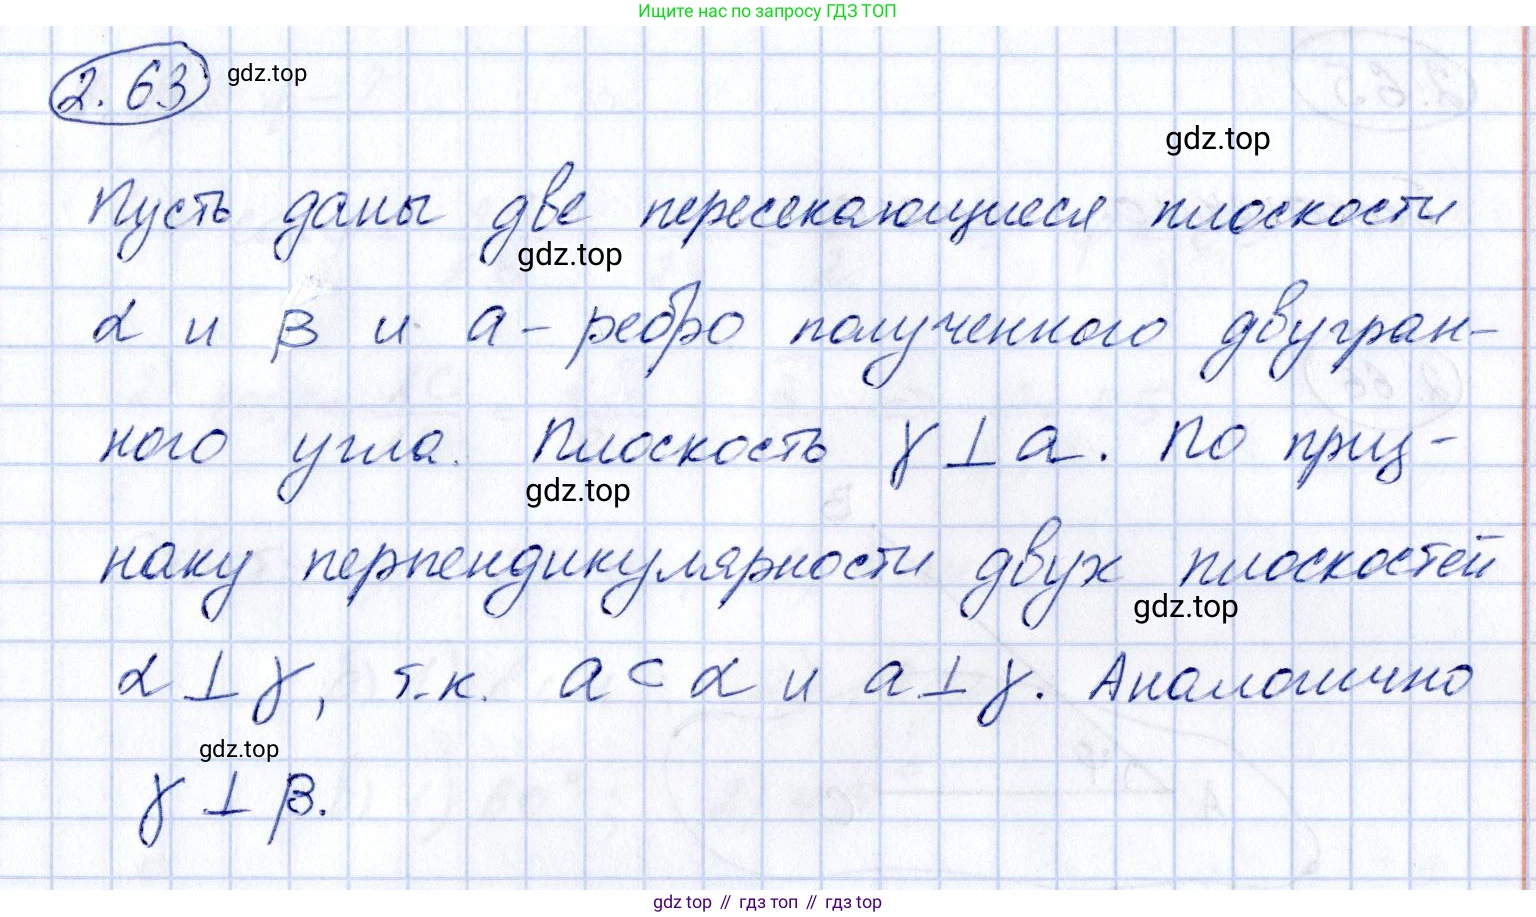 Ищите нас по запросу ГДЗ ТОП
2.63 gdz.top
gdz.top
Пусть даны две пересекающиеся плоскости
gdz.top
α и β и a - ребро полученного двугран-
ного угла. Плоскость γ ⊥ a. По приз-
gdz.top
наку перпендикулярности двух плоскостей
gdz.top
α ⊥ γ, т.к. a ⊂ α и a ⊥ γ. Аналогично
gdz.top
γ ⊥ β.
gdz top // гдз топ // гдз top